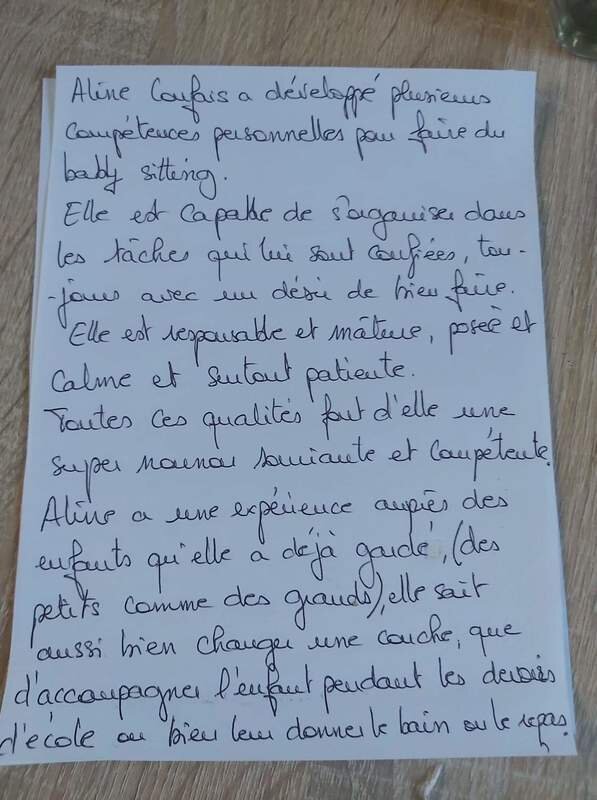 Aline Coufais a développé plusieurs
compétences personnelles pour faire du
baby sitting.
Elle est capable de s'organiser dans
les tâches qui lui sont confiées, tou-
-jours avec un désir de bien faire.
Elle est responsable et mâture, posée et
calme et surtout patiente.
Toutes ces qualités font d'elle une
super nounou souriante et compétente.
Aline a une expérience auprès des
enfants qu'elle a déjà gardé, (des
petits comme des grands), elle sait
aussi bien changer une couche, que
d'accompagner l'enfant pendant les devoirs
d'école ou bien leur donner le bain ou le repas.